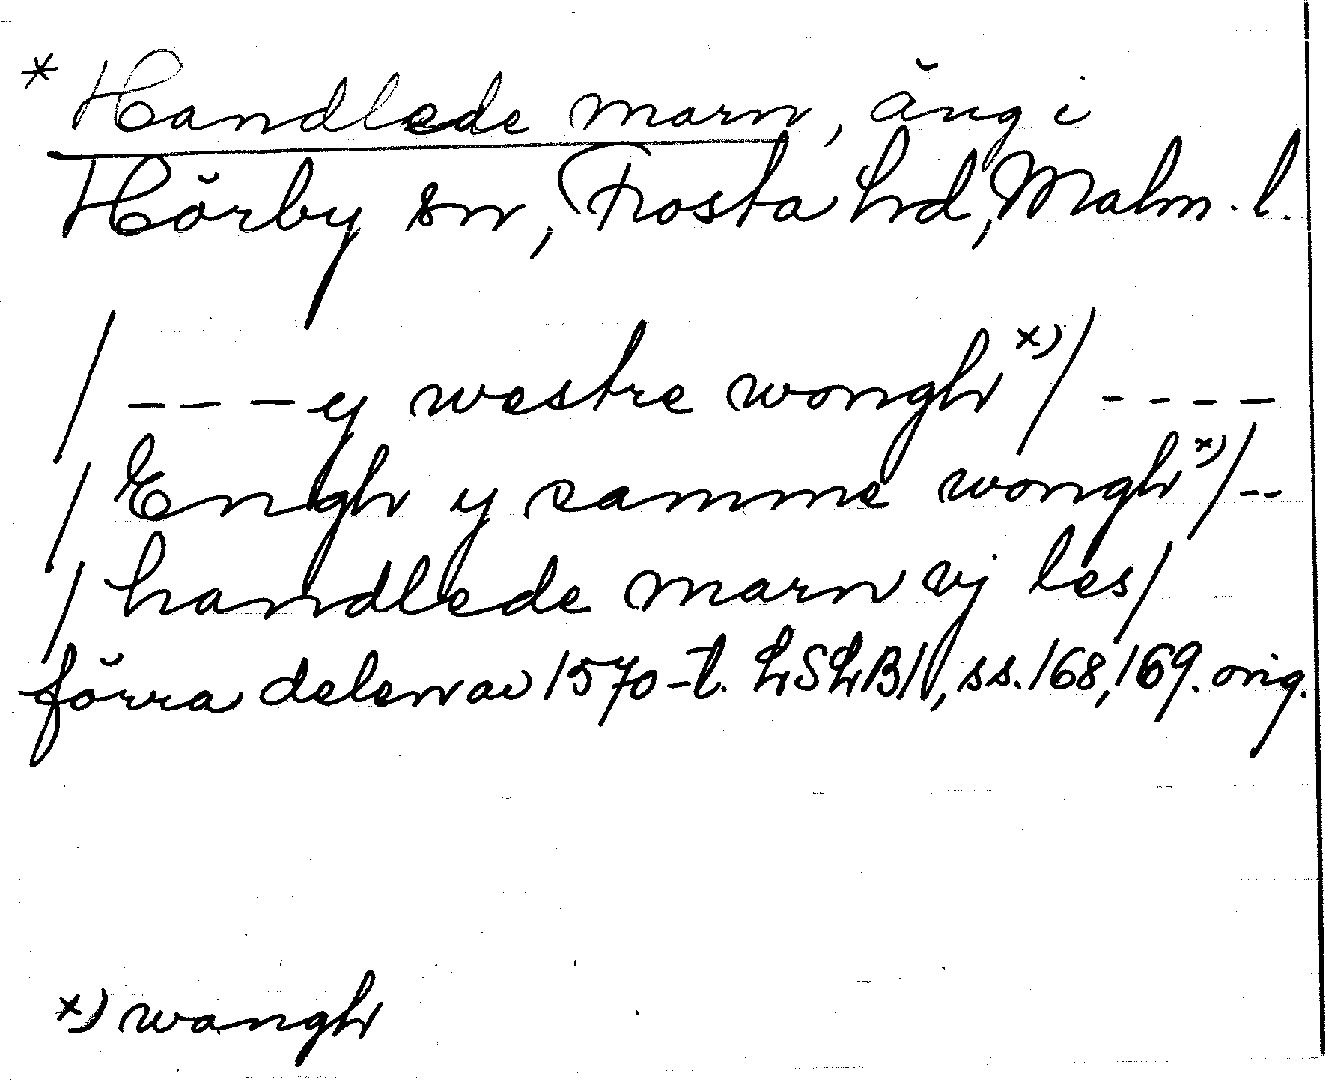 * Handlede marn, äng i
Hörby sn, Frosta hd, Malm. l.
/ --- y westre wongh x) / ----
/ Engh y samme wongh x) / --
/ handlede marn vj les /
förra delen av 1570-t. LSLB II, ss. 168, 169. orig.
x) wangh